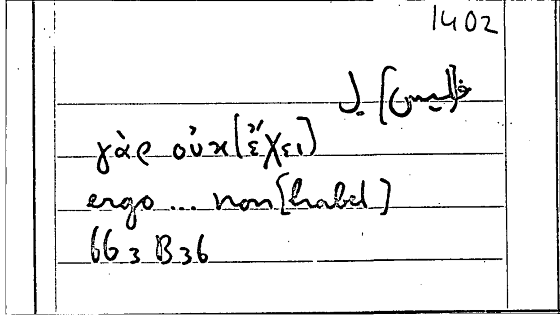 1402
[فليس] ل
γὰρ οὐκ [ἔχει]
ergo ... non [habet]
663 B36